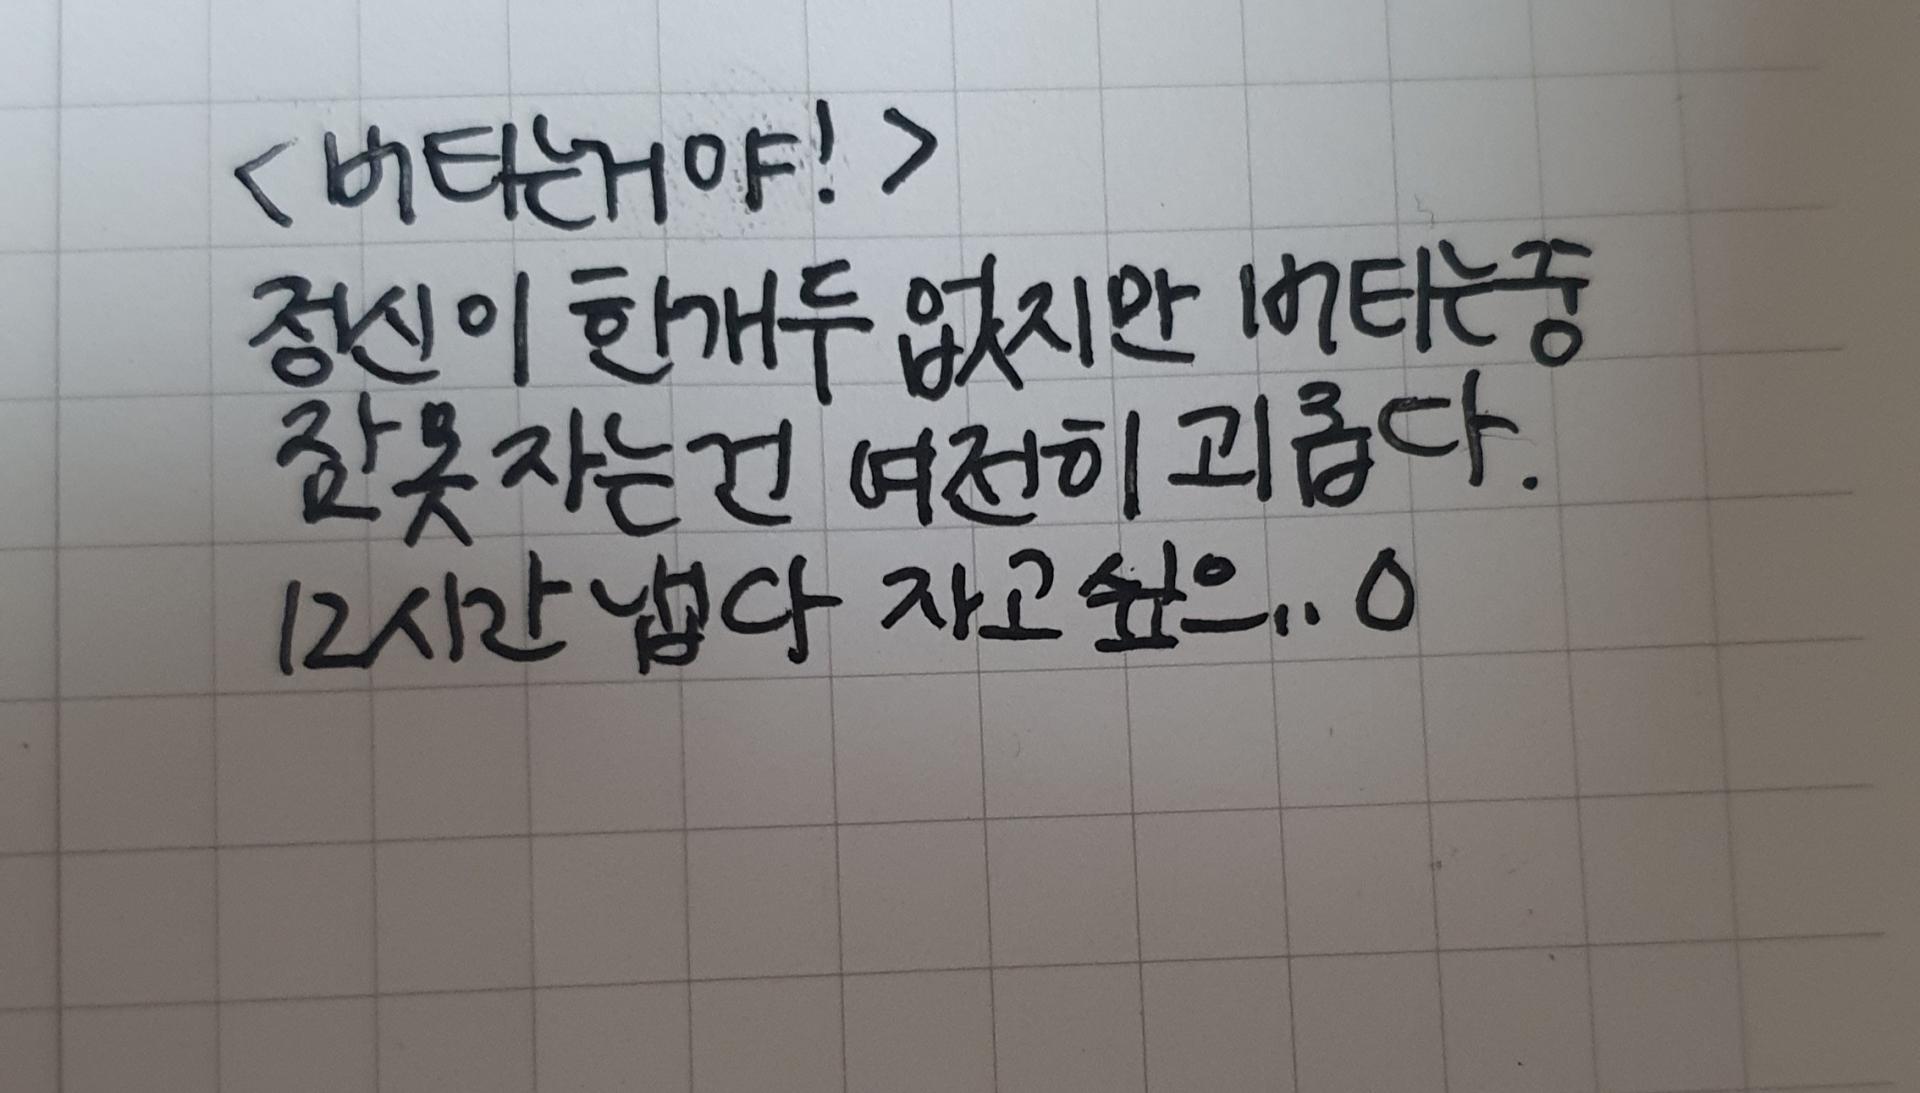 <버티는거야!>
정신이 한개두 없지만 버티는중
잘못 자는건 여전히 괴롭다.
12시간 냅다 자고싶으..ㅇ